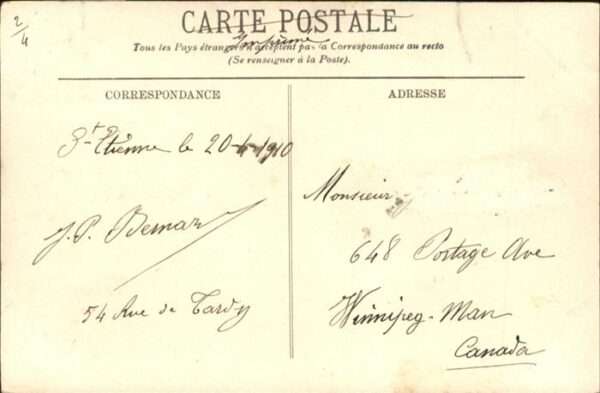 2/4
CARTE POSTALE
Imprimé
Tous les Pays étrangers n'acceptent pas la Correspondance au recto
(Se renseigner à la Poste).
CORRESPONDANCE
ADRESSE
St Etienne le 20-4-1910
J. P. Bernard
54 Rue de Tardy
Monsieur
648 Portage Ave
Winnipeg - Man
Canada